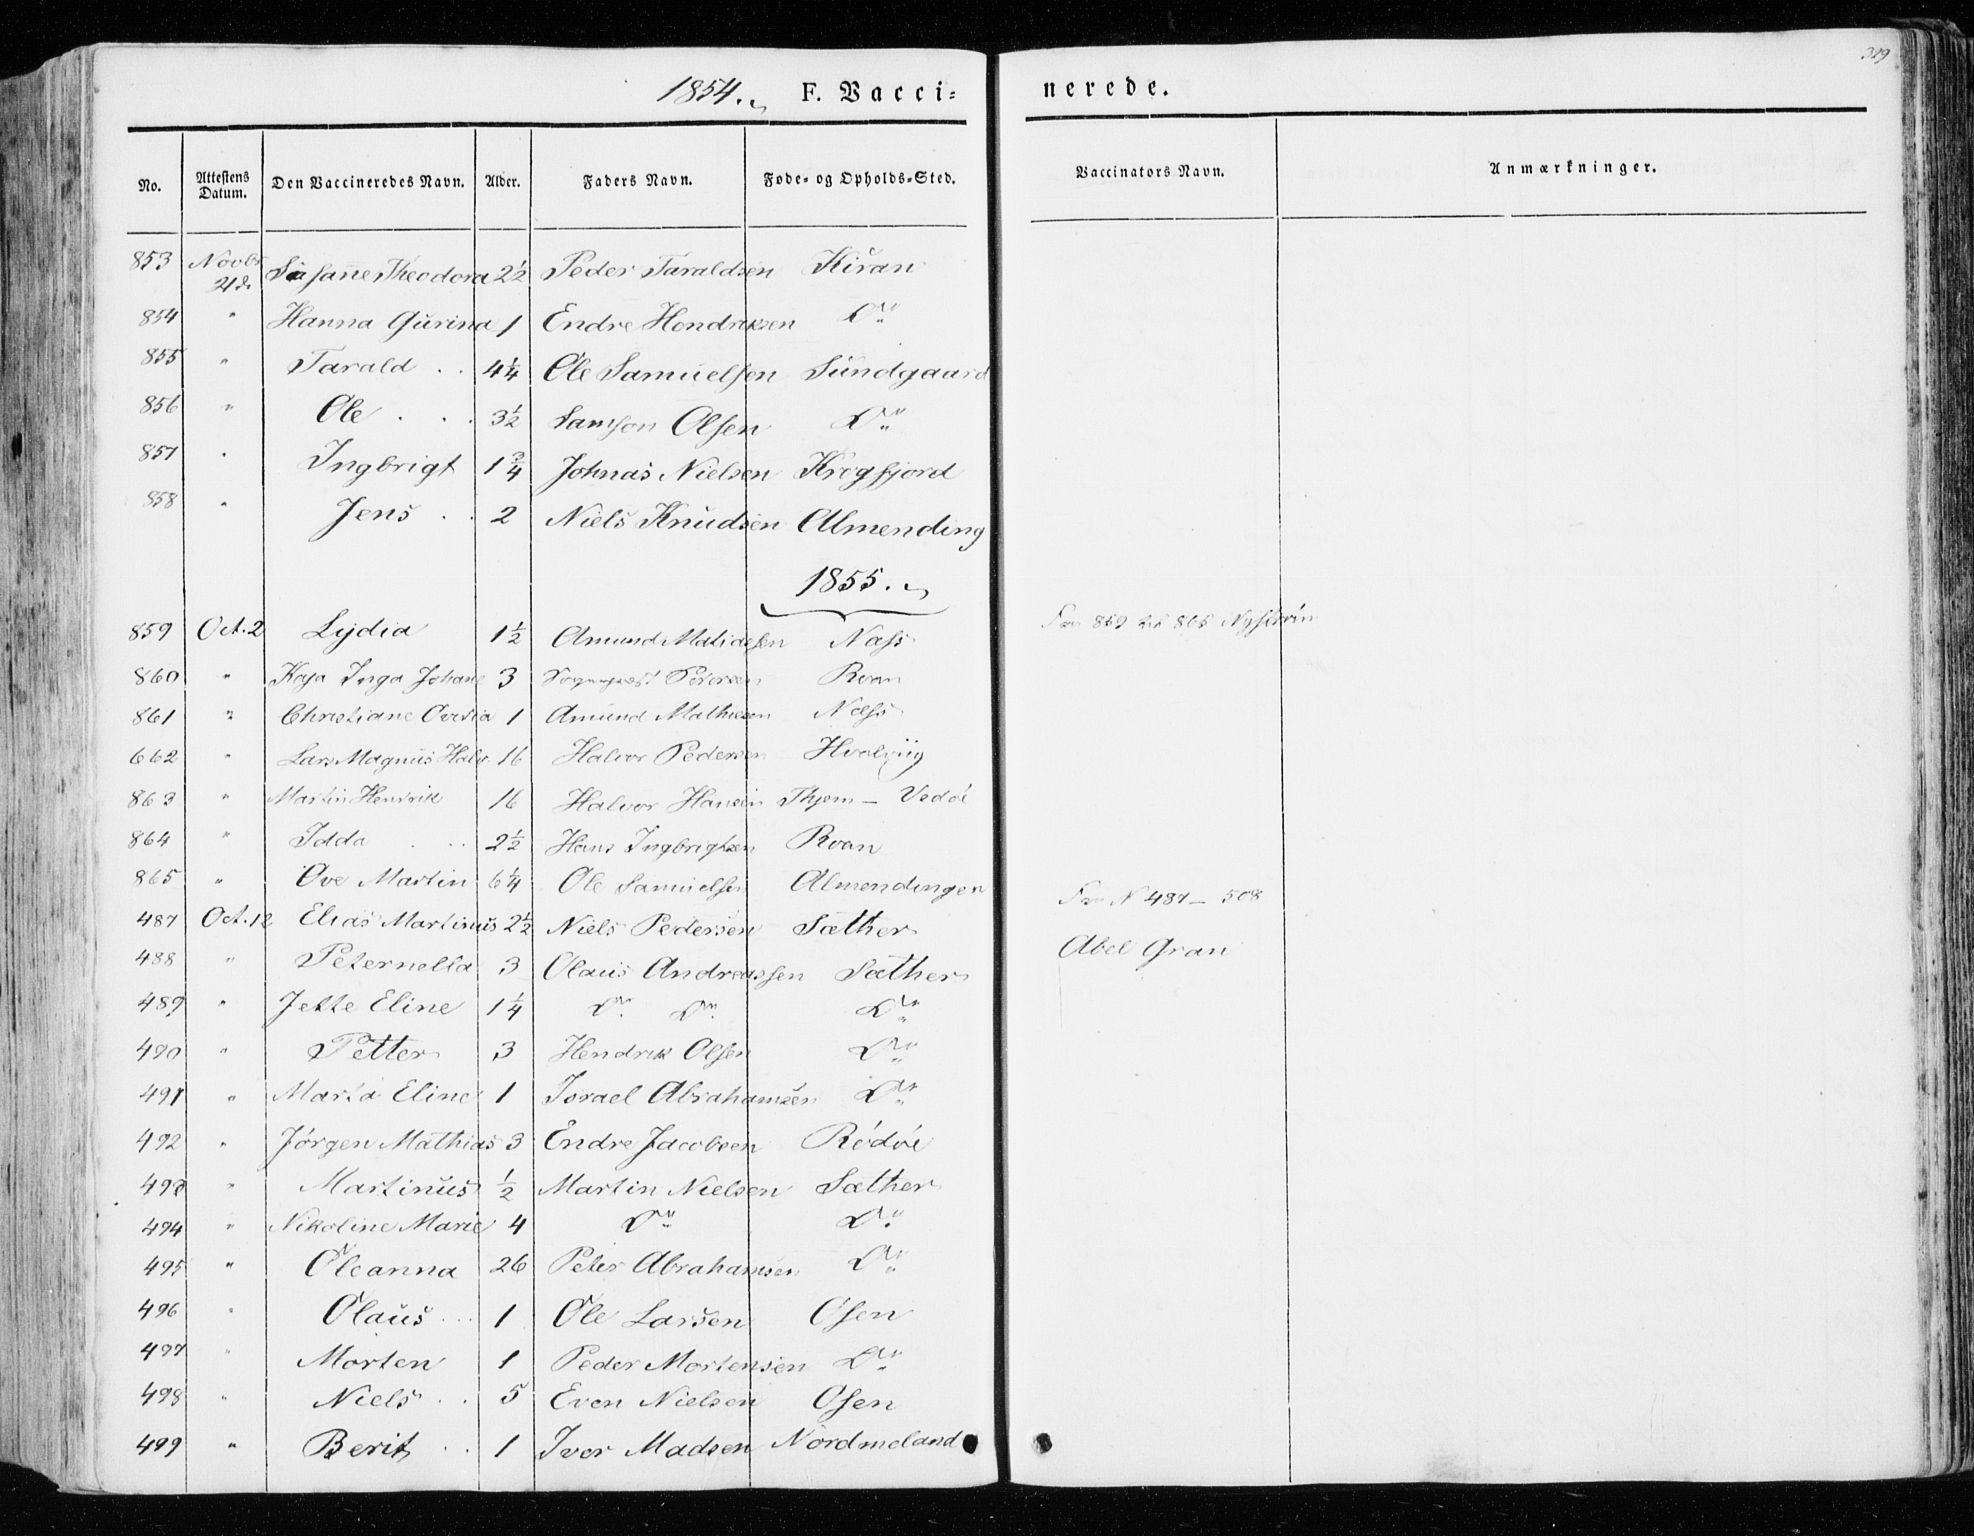 319
1854. F. Vacci= nerede.
No. Attestens Datum. Den Vaccineredes Navn. Alder. Faders Navn. Føde- og Opholds-Sted. Vaccinators Navn. Anmærkninger.
853 Novbr 21d. Susanne Theodora 2½ Peder Taraldsen Kiran
854 " Hanna Gurina 1 Endre Hendriksen Do
855 " Tarald . . 4¼ Ole Samuelsen Sundgaard
856 " Ole . . . 3½ Samson Olsen Do
857 " Ingbrigt 1¾ Johnas Nielsen Krogfjord
858 " Jens . . 2 Niels Knudsen Almending
1855.
859 Oct. 2 Lydia 1½ Amund Næss Fra 859 til 865
860 " Kaja Inga Johane 3 Petersen Roan
861 " Christiane 1 Amund Mathiesen Næss
662 " Lars Magnus Halv. 16 Halvor Pedersen
863 " Martin Hendrik 16 Halvor Hansen Vedøe
864 " Idda . . . 2½ Hans Ingbrigtsen Roan
865 " Ove Martin 6¼ Ole Samuelsen Almendingen
487 Oct. 12 Elias Martinus 2½ Niels Pedersen Sæther Fra N 487 – 508
488 " Peternella 3 Olaus Andreassen Sæther Abel Gran
489 " Jette Eline 1¼ Do Do Do
490 " Petter 3 Hendrik Olsen Do
491 " Marta Eline 1 Israel Abrahamsen Do
492 " Jørgen Mathias 3 Endre Jacobsen Rødøe
493 " Martinus ½ Martin Nielsen Sæther
494 " Nikoline Marie 4 Do Do
495 " Oleanna 26 Peter Abrahamsen Do
496 " Olaus . . . 1 Ole Larsen Osen
497 " Morten 1 Peder Mortensen Do
498 " Niels . . 5 Even Nielsen Osen
499 " Berit . . 1 Iver Madsen Nordmeland